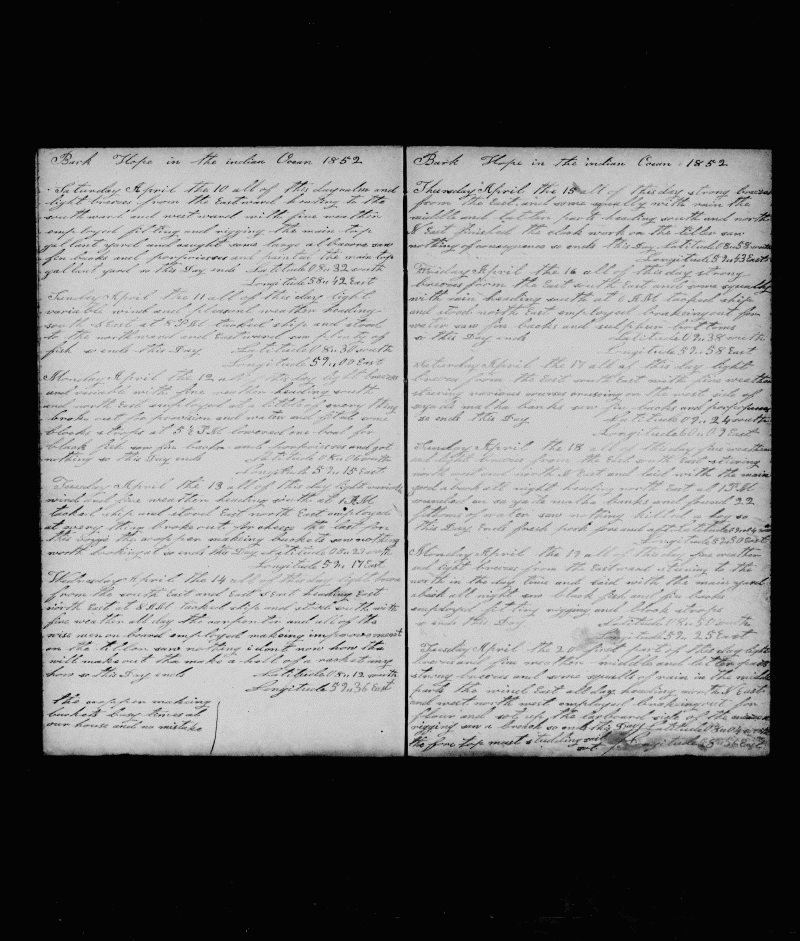 Bark Hope in the indian Ocean 1852
Saturday April the 10 all of this day calm and
light breezes from the Eastward heading to the
southward and westward with fine weather
employed fitting and rigging the main top
gallant yard and caught some lays al bacore saw
fin backs and porpoises and painted the main top
gallant yard so this Day ends Latitude 08 " 32 south
Longitude 58 " 42 East
Sunday April the 11 all of this day light
variable wind and pleasant weather heading
south & East at 8 P.M tacked ship and stood
to the northward and Eastward saw plenty of
fish so ends this Day Latitude 08 " 30 south
Longitude 59 " 00 East
Monday April the 12 all of the day light breezes
and variable with fine weather heading south
and north East employed at little of every thing
broke out for provision and water and fitted some
blocks strops at 5 ½ P.M lowered one boat for
black fish saw fin backs and porpoises and got
nothing so this Day ends Latitude 08 " 06 south
Longitude 59 " 15 East
Tuesday April the 13 all of this day light variable
wind and fine weather heading south at 1 A.M
tacked ship and stood East north East employed
at every thing broke out for the last for
this the cooper making buckets saw nothing
worth looking at so ends this Day Latitude 08 " 23 south
Longitude 59 " 17 East
Wednesday April the 14 all of this day light breezes
from the south East and East & East heading East
north East at 8 A.M tacked ship and stood south with
fine weather all day the carpenter and all of the
wise men on board employed making improvement
on the tiller saw nothing i dont now how tha
will make out tha make a hell of a racket any
how so this Day ends Latitude 08 " 12 south
Longitude 59 " 36 East
the cooper making
buckets busy times at
our house and no mistake
Bark Hope in the indian Ocean 1852
Thursday April the 15 all of this day strong breezes
from the East and some squally with rain the
middle and latter part heading south and north
& East finished the clock work on the tiller saw
nothing of consequence so ends this Day Latitude 08 " 58 south
Longitude 59 " 43 East
Friday April the 16 all of this day strong
breezes from the East south East and some squally
with rain heading south at 6 A.M tacked ship
and stood north East employed breaking out for
water saw fin backs and sulphur bottoms
so this Day ends Latitude 09 " 38 south
Longitude 59 " 58 East
Saturday April the 17 all of this day light
breezes from the East south East with fine weather
steering various courses cruising on the west side of
syade malha banks saw fin backs and porpoises
so ends this Day Latitude 09 " 24 south
Longitude 60 " 09 East
Sunday April the 18 all of this day fine weather
and light breezes from the East and the East steering
north north & East and laid with the main
yard aback all night heading north East at 1 P.M
sounded on sayade malha banks and found 22
fathoms of water saw nothing killed a hog so
this Day Ends fresh pork fore and aft Latitude
Longitude 50 East
Monday April the 19 all of this day fine weather
and light breezes from the Eastward steering to the
north in the day time and said with the main yard
aback all night saw black fish and fin backs
employed fitting rigging and block strops
so ends this Day Latitude 08 " 50 south
Longitude 59 " 25 East
Tuesday April the 20 first part of this day light
breezes and fine weather middle and latter part
strong breezes and some squalls of rain in the middle
part the wind East all day heading north & East
and west north west employed breaking out for
flour and set up the larboard side of the main
rigging saw a breach so ends this Day Latitude 08 " 04 south
the fore top mast studding sail Longitude 58 " 56 East